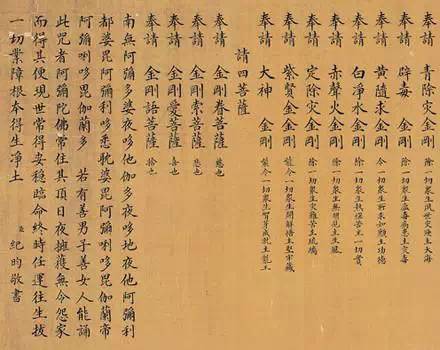 奉請 青除灾金剛 除一切衆生夙世灾殃主大海
奉請 辟毒金剛 除一切衆生瘟毒病患主灾毒
奉請 黃隨求金剛 令一切衆生所求如願主功德
奉請 白淨水金剛 除一切衆生執惱苦主一切寶
奉請 赤聲火金剛 除一切衆生無明見主生風
奉請 定除灾金剛 除一切衆生灾難苦主琉璃
奉請 紫賢金剛 能令一切衆生開解悟主堅牢藏
奉請 大神金剛 能令一切衆生智芽成就主龍王
請四菩薩
奉請 金剛眷菩薩 慈也
奉請 金剛索菩薩 悲也
奉請 金剛愛菩薩 喜也
奉請 金剛語菩薩 捨也
南無阿彌多婆夜哆他伽多夜哆地夜他阿彌利
都婆毘阿彌唎哆悉耽婆毘阿彌唎哆毘伽蘭帝
阿彌唎哆毘伽蘭多 若有善男子善女人能誦
此咒者阿彌陀佛常住其頂日夜擁護無令怨家
而得其便現世常得安穩臨命終時任運往生拔
一切業障根本得生淨土 臣 紀昀敬書